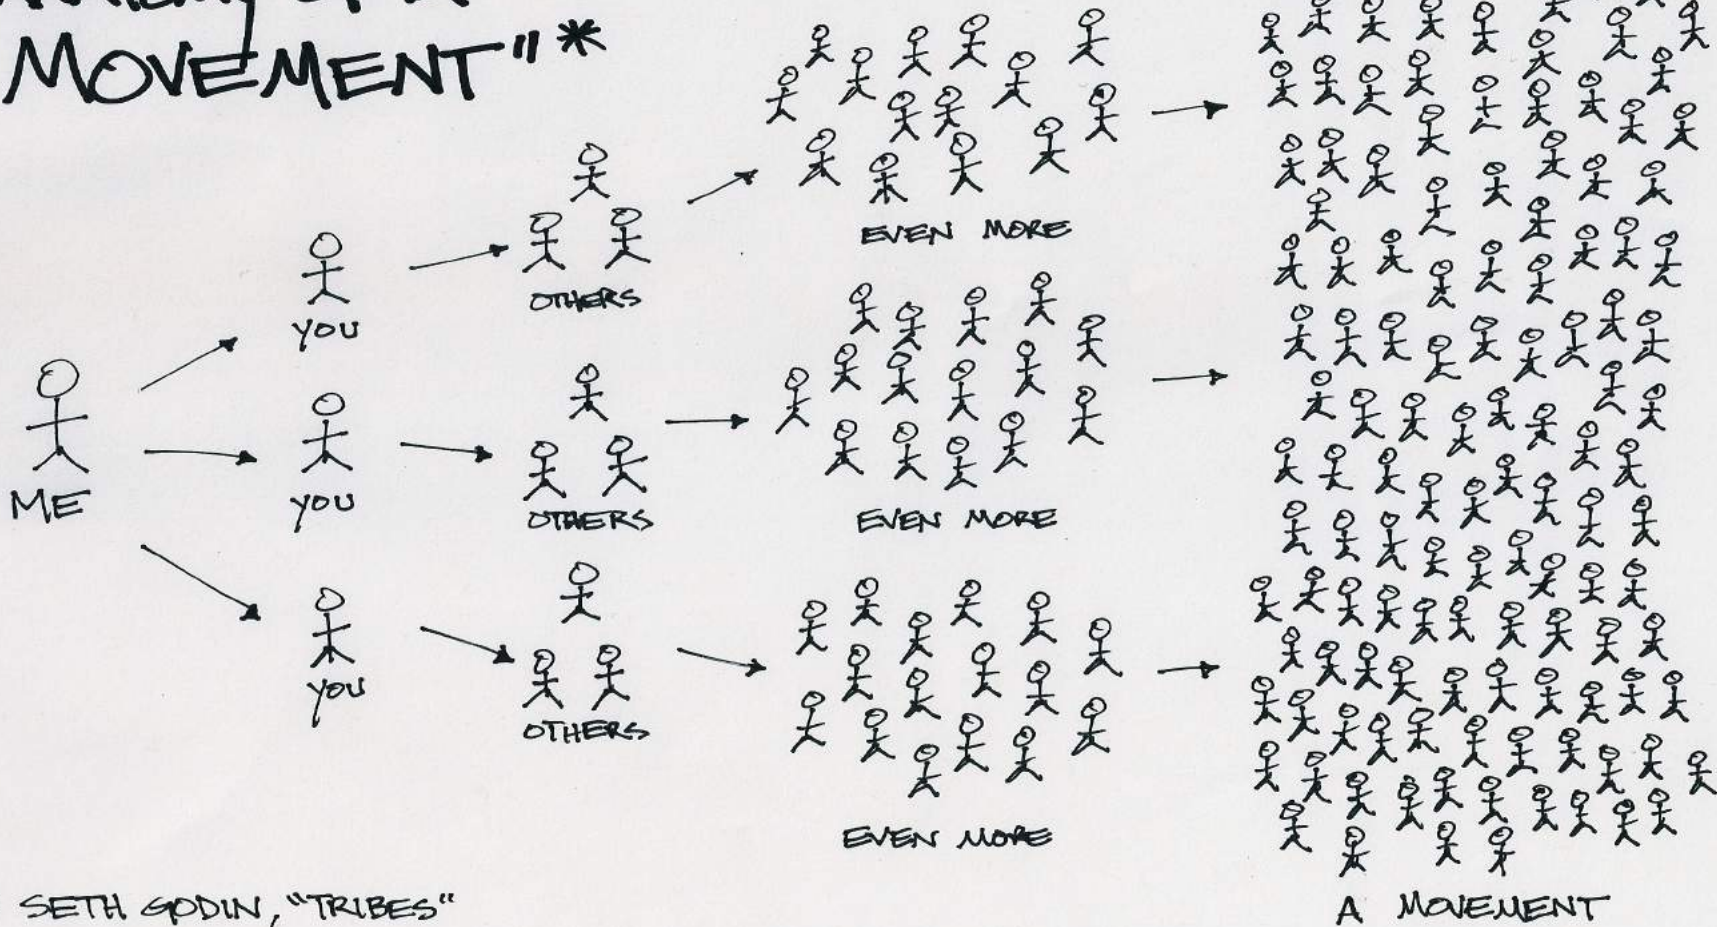 MOVEMENT"*
ME
YOU
YOU
YOU
OTHERS
OTHERS
OTHERS
EVEN MORE
EVEN MORE
EVEN MORE
A MOVEMENT
SETH GODIN, "TRIBES"